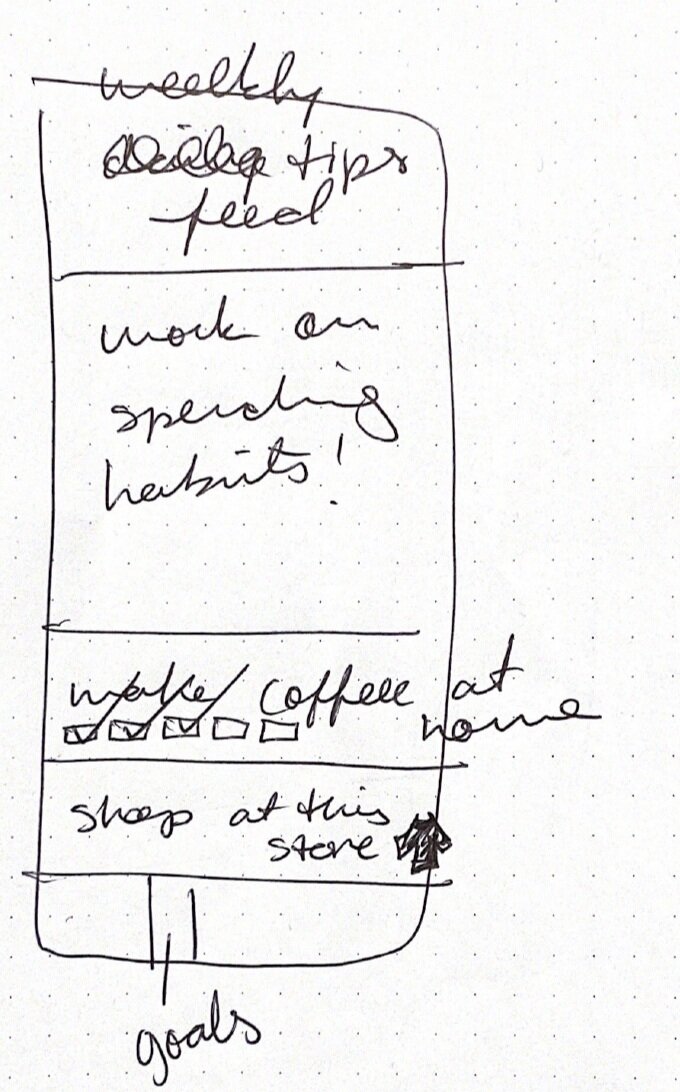 weekly
tips
feed
work on
spending
habits!
make coffee at
home
shop at this
store
goals